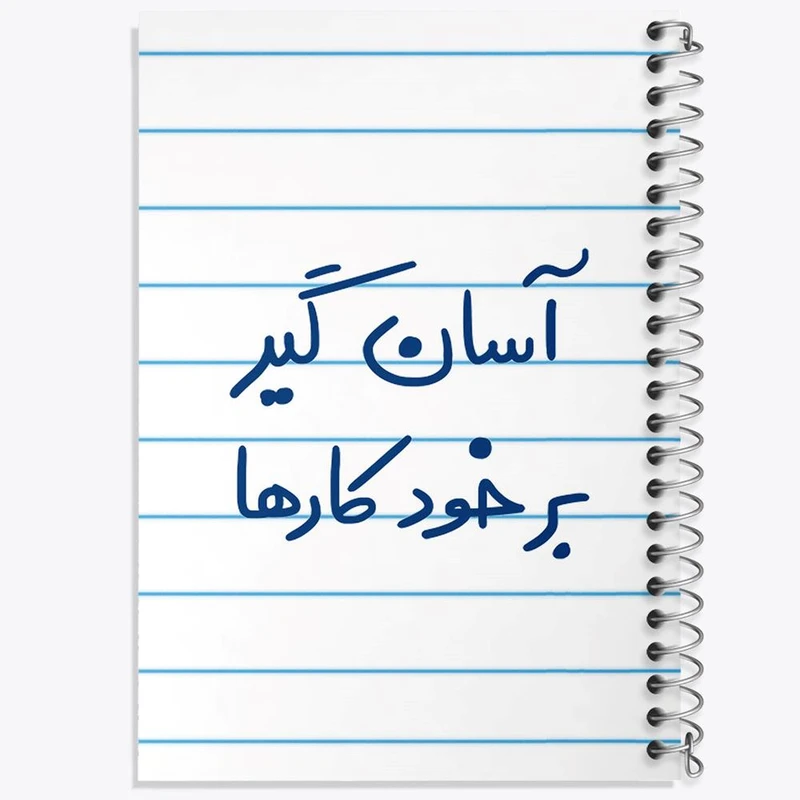 آسان گیر
بر خود کارها